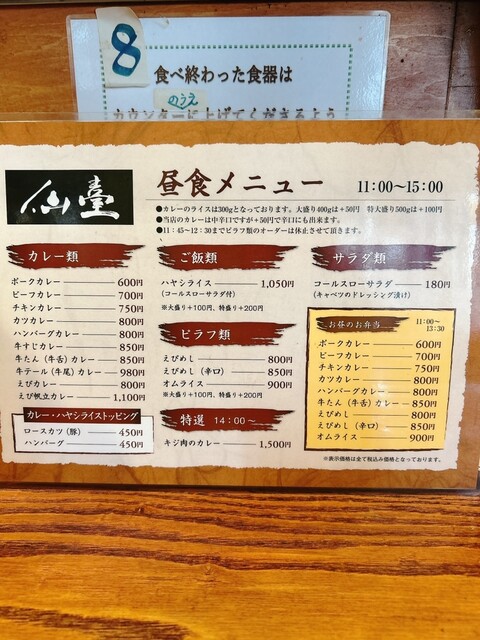 8
食べ終わった食器は
のうえ
カウンターに上げてくださるよう
仙臺
昼食メニュー 11:00～15:00
●カレーのライスは300gとなっております。大盛り400gは+50円 特大盛り500gは+100円
●当店のカレーは中辛口ですが+50円で辛口にも出来ます。
●11:45～12:30までピラフ類のオーダーは休止させて頂きます。
カレー類
ポークカレー 600円
ビーフカレー 700円
チキンカレー 750円
カツカレー 800円
ハンバーグカレー 800円
牛すじカレー 850円
牛たん(牛舌)カレー 850円
牛テール(牛尾)カレー 980円
えびカレー 800円
えび帆立カレー 1,100円
カレー・ハヤシライストッピング
ロースカツ(豚) 450円
ハンバーグ 450円
ご飯類
ハヤシライス 1,050円
(コールスローサラダ付)
※大盛り+100円、特盛り+200円
ピラフ類
えびめし 800円
えびめし(辛口) 850円
オムライス 900円
※大盛り+100円、特盛り+200円
特選 14:00～
キジ肉のカレー 1,500円
サラダ類
コールスローサラダ 180円
(キャベツのドレッシング漬け)
お昼のお弁当 11:00～13:30
ポークカレー 600円
ビーフカレー 700円
チキンカレー 750円
カツカレー 800円
ハンバーグカレー 800円
牛たん(牛舌)カレー 850円
えびめし 800円
えびめし(辛口) 850円
オムライス 900円
※表示価格は全て税込み価格となっております。